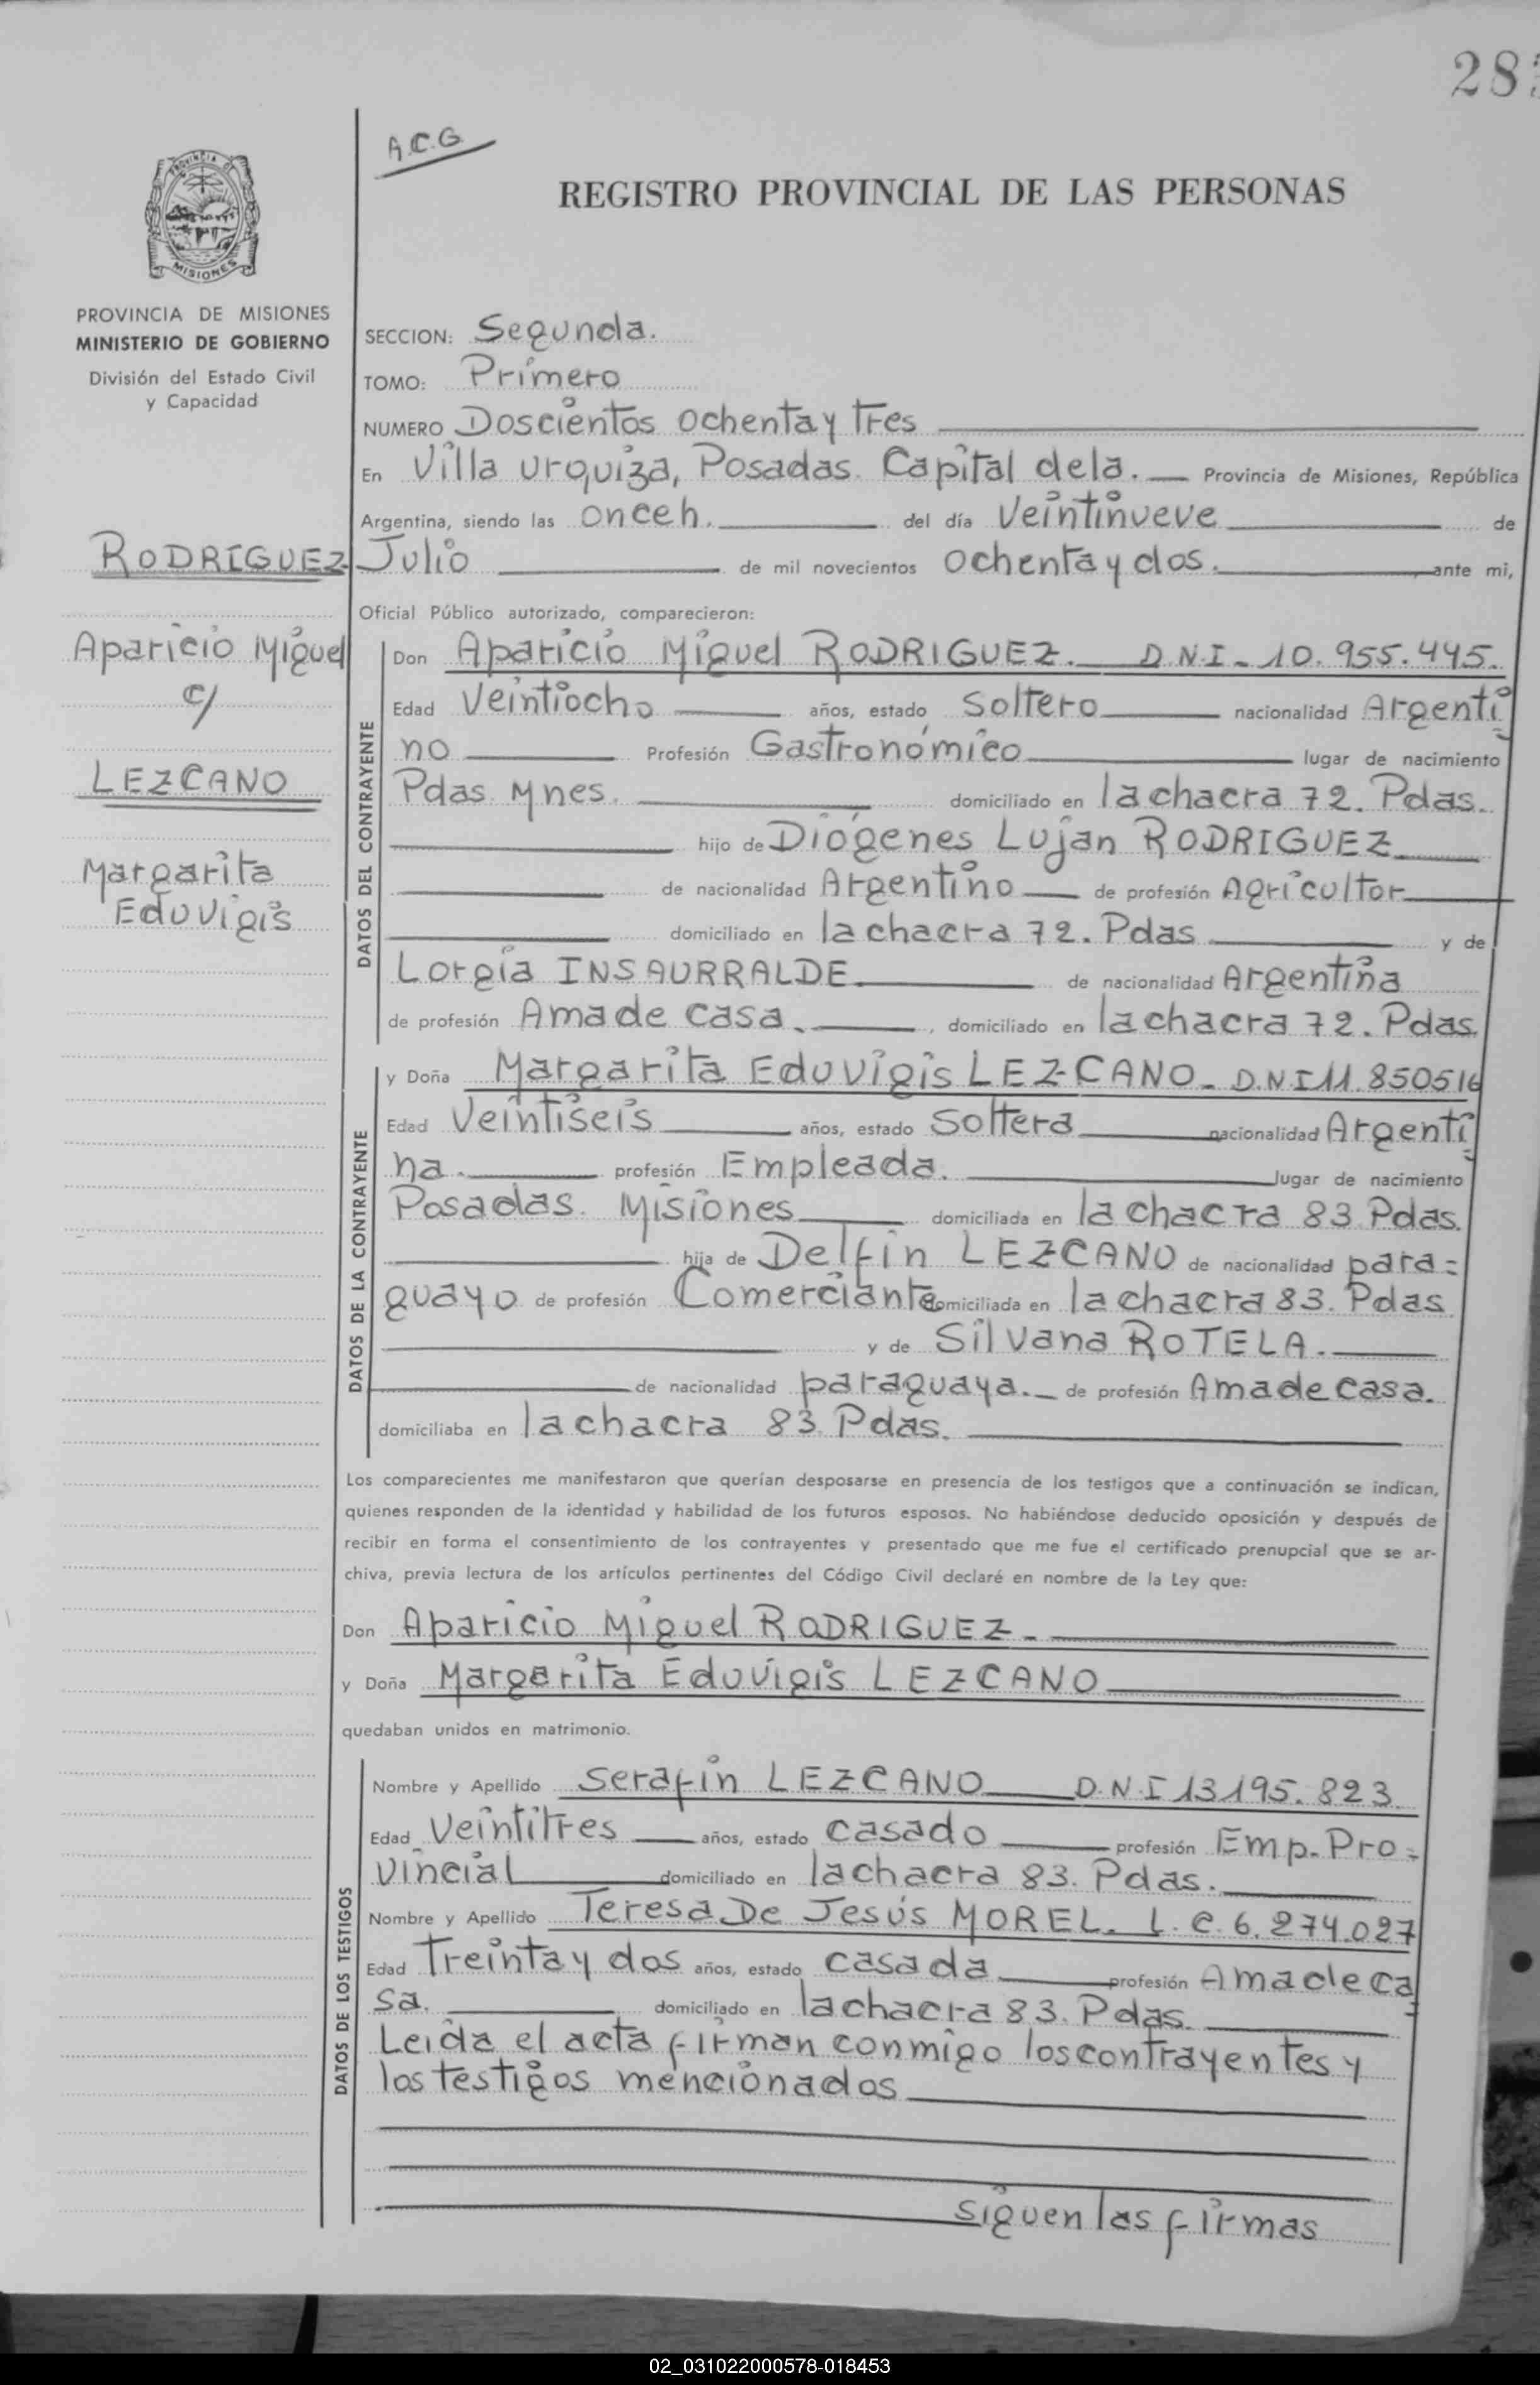 A.C.G
REGISTRO PROVINCIAL DE LAS PERSONAS
PROVINCIA DE
MISIONES
PROVINCIA DE MISIONES
MINISTERIO DE GOBIERNO
División del Estado Civil
y Capacidad
RODRIGUEZ
Aparicio Miguel
c/
LEZCANO
Margarita
Eduvigis
SECCION: Segunda.
TOMO: Primero
NUMERO Doscientos ochenta y tres
En Villa Urquiza, Posadas. Capital de la. Provincia de Misiones, República
Argentina, siendo las once h. del día Veintinueve de
Julio de mil novecientos ochenta y dos. ante mi,
Oficial Público autorizado, comparecieron:
DATOS DEL CONTRAYENTE
Don Aparicio Miguel RODRIGUEZ. D.N.I- 10.955.445.
Edad Veintiocho años, estado soltero nacionalidad Argenti
no Profesión Gastronómico lugar de nacimiento
Pdas Mnes. domiciliado en la chacra 72. Pdas.
hijo de Diógenes Lujan RODRIGUEZ
de nacionalidad Argentino de profesión Agricultor
domiciliado en la chacra 72. Pdas y de
Lorgia INSAURRALDE de nacionalidad Argentina
de profesión Ama de casa. , domiciliado en la chacra 72. Pdas.
DATOS DE LA CONTRAYENTE
y Doña Margarita Eduvigis LEZCANO- D.N.I 11.850516
Edad Veintiseis años, estado Soltera nacionalidad Argenti
na. profesión Empleada. lugar de nacimiento
Posadas. Misiones domiciliada en la chacra 83 Pdas.
hija de Delfin LEZCANO de nacionalidad para=
guayo de profesión Comerciante domiciliada en la chacra 83. Pdas
y de Silvana ROTELA.
de nacionalidad paraguaya. de profesión Ama de casa.
domiciliaba en la chacra 83. Pdas.
Los comparecientes me manifestaron que querían desposarse en presencia de los testigos que a continuación se indican,
quienes responden de la identidad y habilidad de los futuros esposos. No habiéndose deducido oposición y después de
recibir en forma el consentimiento de los contrayentes y presentado que me fue el certificado prenupcial que se ar-
chiva, previa lectura de los artículos pertinentes del Código Civil declaré en nombre de la Ley que:
Don Aparicio Miguel RODRIGUEZ-
y Doña Margarita Eduvigis LEZCANO
quedaban unidos en matrimonio.
DATOS DE LOS TESTIGOS
Nombre y Apellido Serafin LEZCANO D.N.I 13195.823.
Edad Veintitres años, estado casado profesión Emp. Pro=
vincial domiciliado en la chacra 83. Pdas.
Nombre y Apellido Teresa De Jesús MOREL. L.C. 6.274.027
Edad Treinta y dos años, estado casada profesión Ama de ca
sa. domiciliado en la chacra 83. Pdas.
Leida el acta firman conmigo los contrayentes y
los testigos mencionados
siguen las firmas
02_031022000578-018453